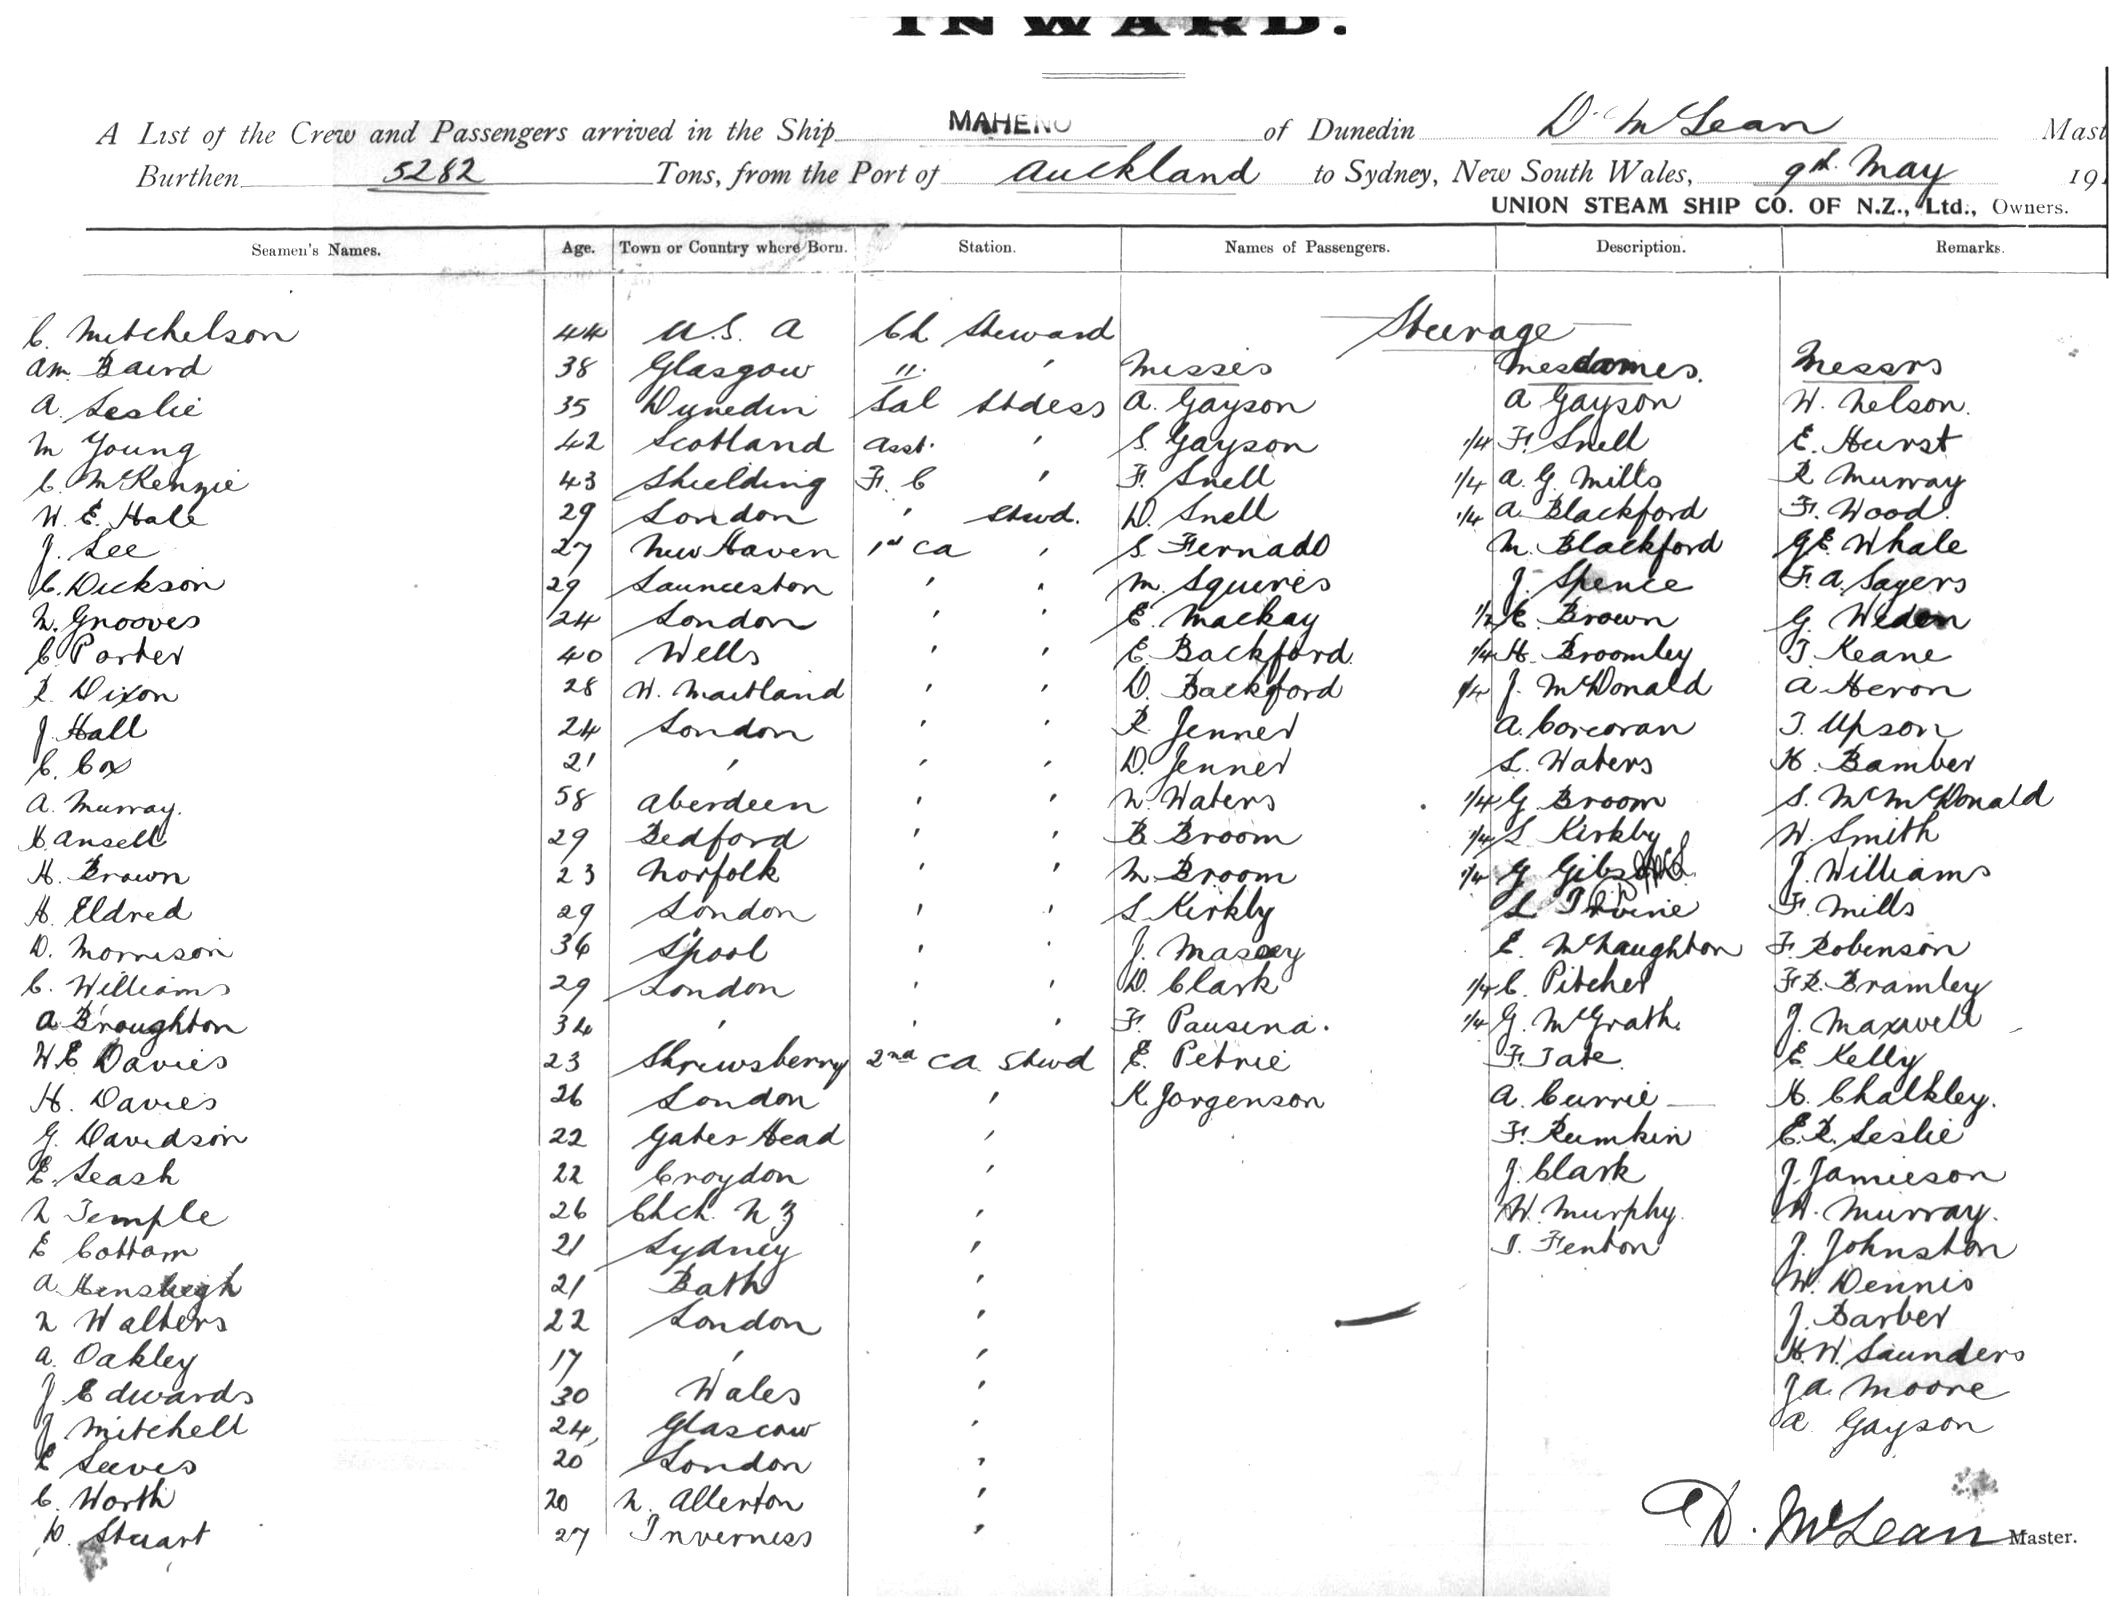 INWARD.
A List of the Crew and Passengers arrived in the Ship MAHENO of Dunedin D. McLean Mast
Burthen 5282 Tons, from the Port of Auckland to Sydney, New South Wales, 9th May 191
UNION STEAM SHIP CO. OF N.Z., Ltd., Owners.
Seamen's Names. Age. Town or Country where Born. Station. Names of Passengers. Description. Remarks.
C. Mitchelson 44 U.S.A Ch Steward Steerage
Am. Baird 38 Glasgow " ' Misses Mesdames. Messrs
A. Leslie 35 Dunedin Sal Stdess A. Gayson A Gayson W. Nelson.
M Young 42 Scotland Asst. ' S. Gayson 1/4 F. Snell E. Hurst
C. McKenzie 43 Shielding F. C ' F. Snell 1/4 A. G. Mills R Murray
W. E. Hale 29 London ' Stwd. D. Snell 1/4 A. Blackford F. Wood.
J. Lee 27 New Haven 1st Ca ' S. Fernado M. Blackford G E. Whale
C. Dickson 29 Launceston ' ' M. Squires J. Spence F. A. Sayers
N. Grooves 24 London ' ' E. Mackay 1/2 E. Brown G. Weden
C. Porter 40 Wells ' ' E. Backford. 1/4 H. Broomley T. Keane
R. Dixon 28 W. Maitland ' ' D. Backford 1/4 J. McDonald A. Heron
J. Hall 24 London ' ' R Jenner A. Corcoran T. Upson
C. Cox 21 ' ' ' D. Jenner L. Waters H. Bamber
A. Murray. 58 Aberdeen ' ' N. Waters 1/4 G. Broom S. McMcDonald
H. Ansell 29 Bedford ' ' B. Broom 1/4 L Kirkby W. Smith
H. Brown 23 Norfolk ' ' M. Broom 1/4 G J. Williams
H. Eldred 29 London ' ' L Kirkby L Irvine F. Mills
D. Morrison 36 L'pool ' ' J. Massey E. McNaughton F. Robinson
C. Williams 29 London ' ' D. Clark 1/4 C. Pitcher F R. Bramley
A Broughton 34 ' ' ' F. Pausina. 1/4 G. McGrath. J. Maxwell
W. E Davies 23 Shrewsberry 2nd Ca. Stwd E. Petrie F. Tate E Kelly
H. Davies 26 London ' K Jorgenson A. Currie H. Chalkley.
G. Davidson 22 Gates Head ' F. Rumkin E. R. Leslie
E. Leash 22 Croydon ' J. Clark J. Jamieson
N Temple 26 Chch. N Z ' W. Murphy. W. Murray.
E Cottam 21 Sydney ' T. Fenton J. Johnston
A. Hensleigh 21 Bath ' W. Dennis
N Walters 22 London ' J. Barber
A. Oakley 17 ' ' H. W. Saunders
J Edwards 30 Wales ' J A. Moore
J Mitchell 24 Glascow ' A Gayson
E Leeves 20 London '
C. Worth 20 N. Allerton '
D. Stuart 27 Inverness ' D. McLean Master.